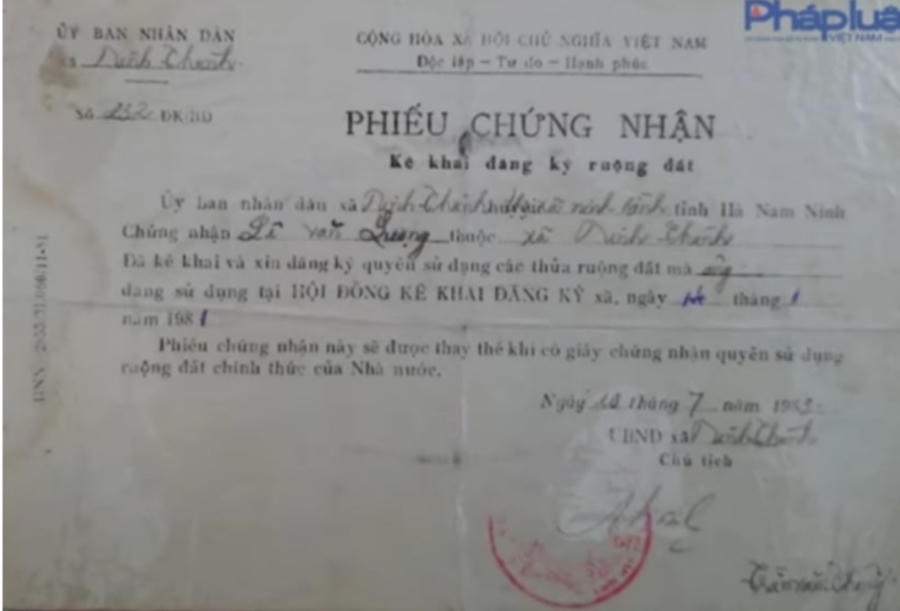 Pháp luậ
VIỆT NAM
ỦY BAN NHÂN DÂN
xã Ninh Thành
CỘNG HÒA XÃ HỘI CHỦ NGHĨA VIỆT NAM
Độc lập - Tự do - Hạnh phúc
Số 232 ĐK/RĐ
PHIẾU CHỨNG NHẬN
Kê khai đăng ký ruộng đất
Ủy ban nhân dân xã Ninh Thành thị xã ninh bình tỉnh Hà Nam Ninh
Chứng nhận Lê văn Lượng thuộc xã Ninh Thành
Đã kê khai và xin đăng ký quyền sử dụng các thửa ruộng đất mà ông
đang sử dụng tại HỘI ĐỒNG KÊ KHAI ĐĂNG KÝ xã, ngày tháng 1
năm 1981
Phiếu chứng nhận này sẽ được thay thế khi có giấy chứng nhận quyền sử dụng
ruộng đất chính thức của Nhà nước.
Ngày tháng 7 năm 1983
UBND xã Ninh Thành
Chủ tịch
Trần văn